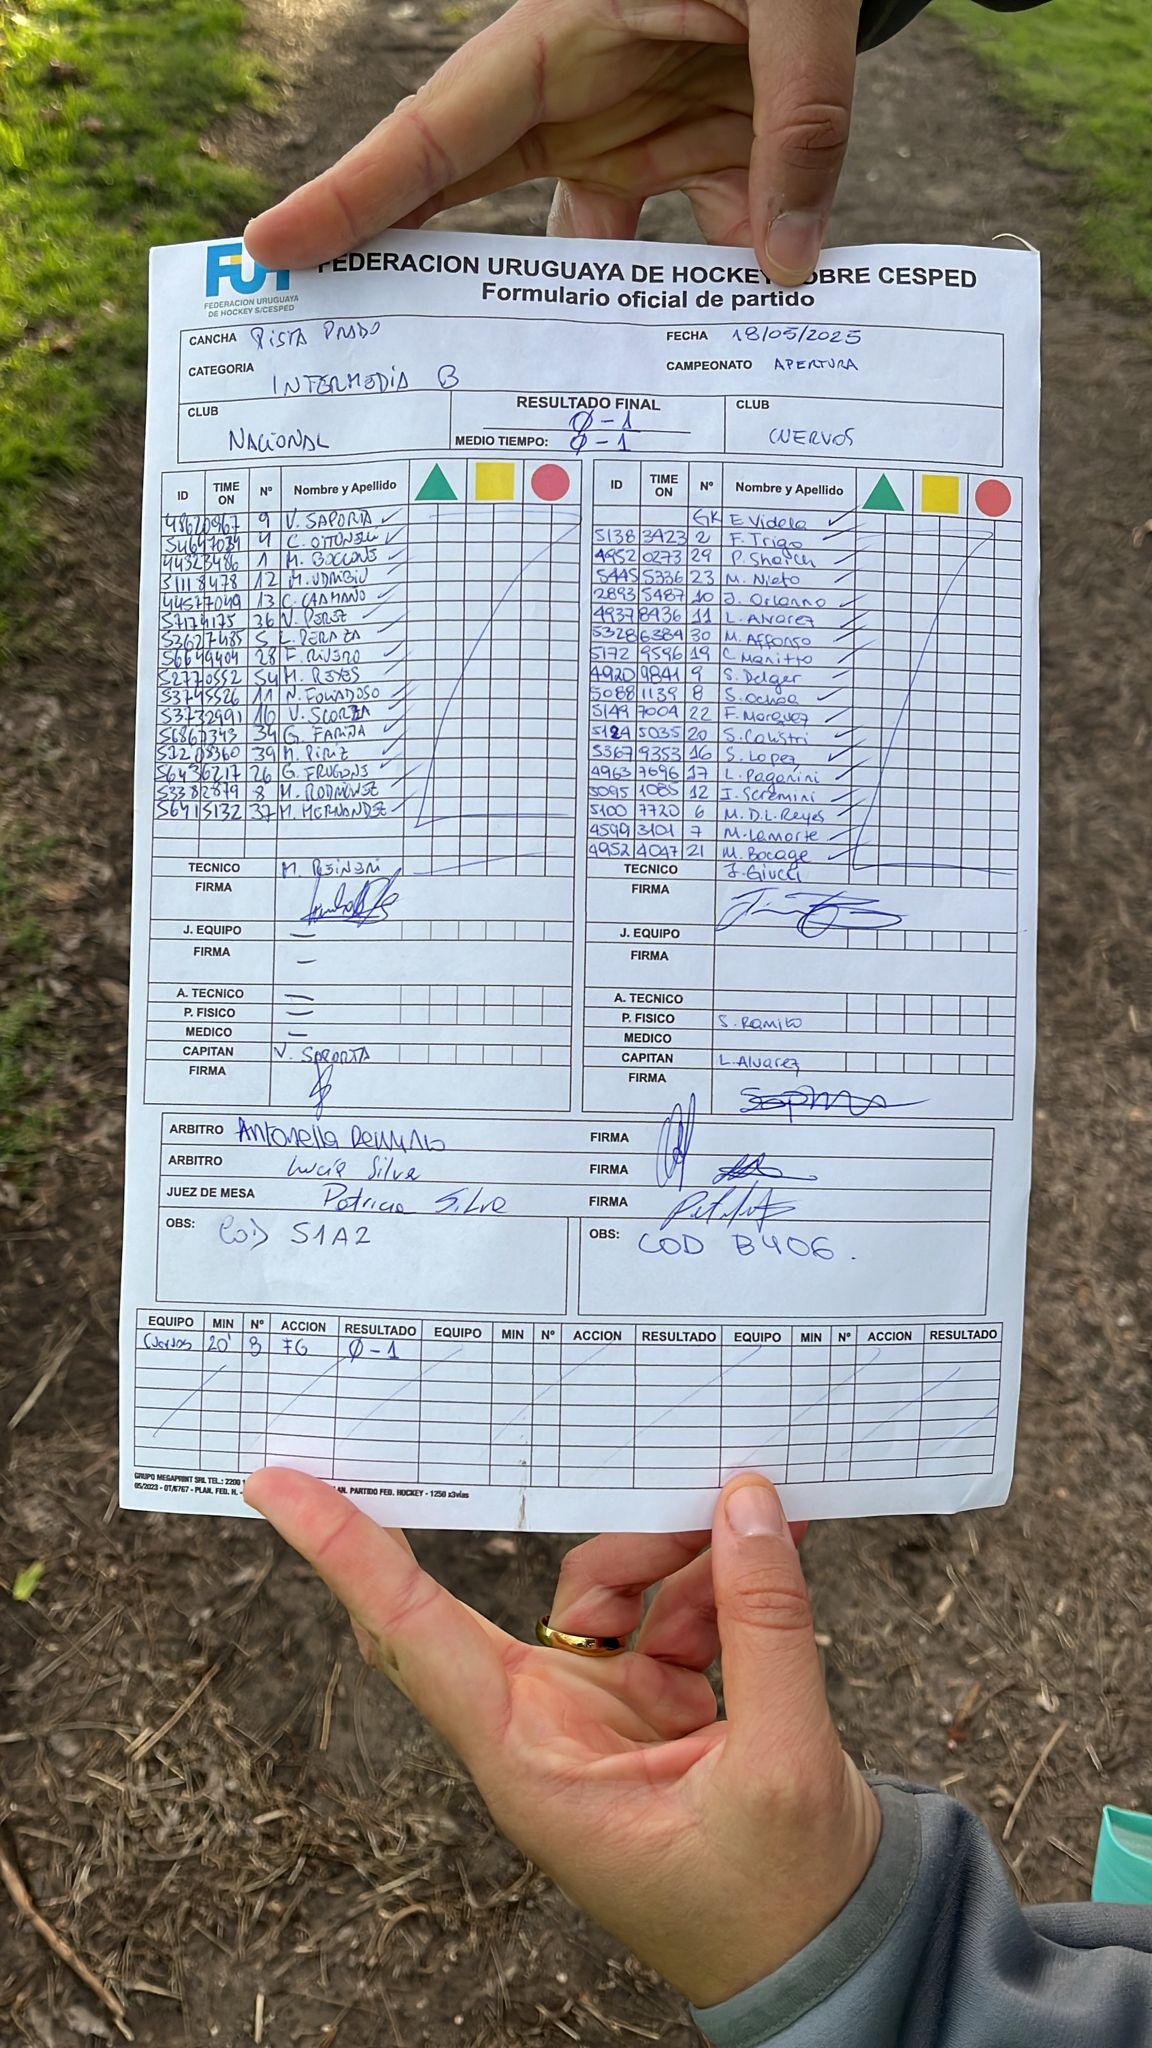 FEDERACION URUGUAYA DE HOCKEY SOBRE CESPED
Formulario oficial de partido
FEDERACION URUGUAYA
DE HOCKEY S/CESPED
CANCHA PISTA PRADO FECHA 18/05/2025
CATEGORIA INTERMEDIA B CAMPEONATO APERTURA
CLUB NACIONAL RESULTADO FINAL Ø-1 CLUB CUERVOS
MEDIO TIEMPO: Ø-1
ID TIME ON Nº Nombre y Apellido
48620967 9 V. SAPORTA
54647039 4 C.
44323486 1 M.
51118478 12 M.
44577049 13 C. CAAMAÑO
57174175 36 V. PEREZ
53627485 5 L. PERAZA
56649404 28 F. RIVERO
52770552 54 M. REYES
53745526 11 N.
53732991 16 V. SCORZA
56867343 34 G. FARIÑA
51208360 39 M. PIRIZ
56436217 26 G. FRUGONE
53382879 8 M. RODRIGUEZ
56415132 37 M. HERNANDEZ
TECNICO M.
FIRMA
J. EQUIPO —
FIRMA —
A. TECNICO —
P. FISICO —
MEDICO —
CAPITAN V. SAPORTA
FIRMA
ID TIME ON Nº Nombre y Apellido
GK E Videla
5138 3423 2 F. Trigo
4952 0273 29 P. Sharch
5445 5336 23 M. Nieto
2893 5487 10 J. Orlanno
4937 8936 11 L. Alvarez
5328 6384 30 M. Affonso
5172 9596 19 C. Manitto
4920 9841 9 S. Delger
5088 1139 8 S. Ochoa
5149 7004 22 F. Marquez
5124 5035 20 S. Calistri
5367 9353 16 S. Lopez
4963 7696 17 L. Paganini
5095 1085 12 I. Scremini
5100 7720 6 M. D.L. Reyes
4599 3101 7 M. Lamorte
4952 4047 21 M. Bocage
TECNICO J. Giucci
FIRMA
J. EQUIPO
FIRMA
A. TECNICO
P. FISICO S. Ramito
MEDICO
CAPITAN L. Alvarez
FIRMA
ARBITRO Antonella FIRMA
ARBITRO Lucía Silva FIRMA
JUEZ DE MESA Patricia Silva FIRMA
OBS: COD S1A2 OBS: COD B406.
EQUIPO MIN Nº ACCION RESULTADO EQUIPO MIN Nº ACCION RESULTADO EQUIPO MIN Nº ACCION RESULTADO
Cuervos 20' 8 FG Ø-1
GRUPO MEGAPRINT SRL TEL.: 2200
05/2023 - OT/6767 - PLAN. FED. H. - PARTIDO FED. HOCKEY - 1250 x3vías